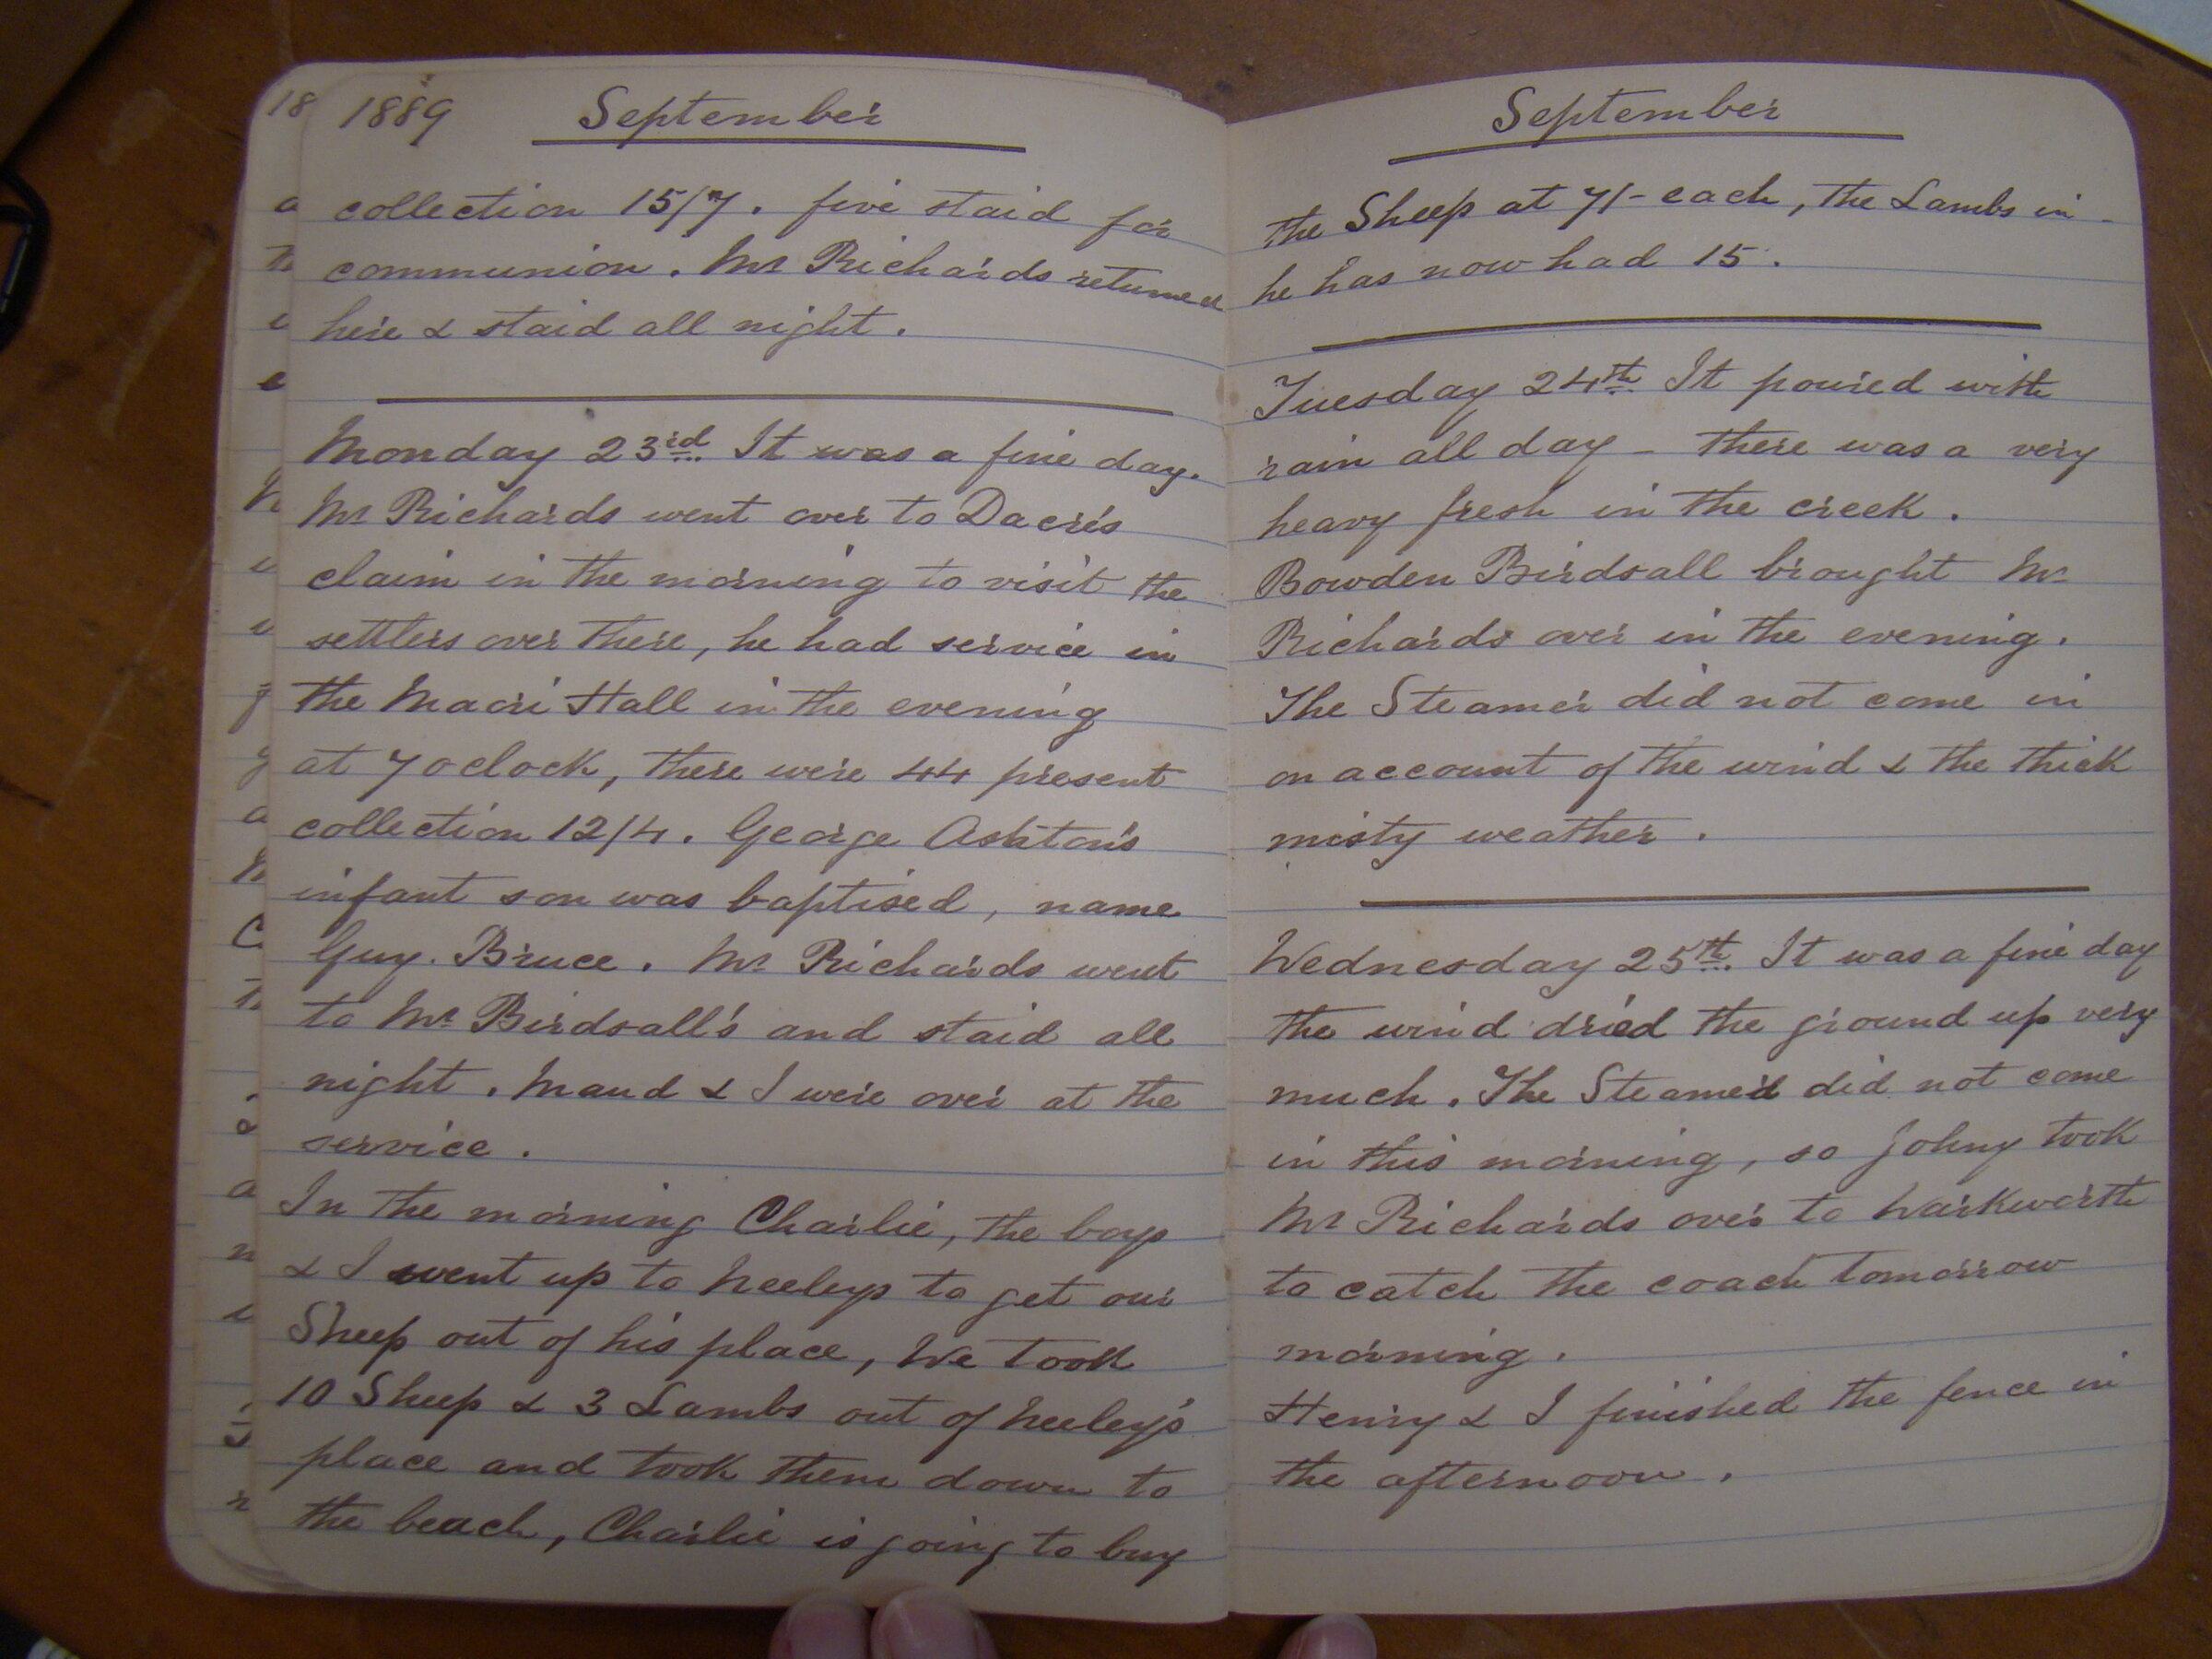 1889 September
collection 15/7. five staid for
communion. Mr Richards returned
here & staid all night.
Monday 23rd It was a fine day.
Mr Richards went over to Dacre's
claim in the morning to visit the
settlers over there, he had service in
the Maori Hall in the evening
at 7 oclock, there were 44 present
collection 12/4. George Ashton's
infant son was baptised, name
Guy. Bruce. Mr Richards went
to Mr Birdsall's and staid all
night. Maud & I were over at the
service.
In the morning Charlie, the boys
& I went up to Neeleys to get our
Sheep out of his place, We took
10 Sheep & 3 Lambs out of Neeley's
place and took them down to
the beach, Charlie is going to buy
September
the Sheep at 7/- each, the Lambs in -
he has now had 15.
Tuesday 24th It poured with
rain all day - there was a very
heavy fresh in the creek.
Bowden Birdsall brought Mr
Richards over in the evening.
The Steamer did not come in
on account of the wind & the thick
misty weather.
Wednesday 25th It was a fine day
the wind dried the ground up very
much. The Steamer did not come
in this morning, so Johny took
Mr Richards over to Warkworth
to catch the coach tomorrow
morning.
Henry & I finished the fence in
the afternoon.